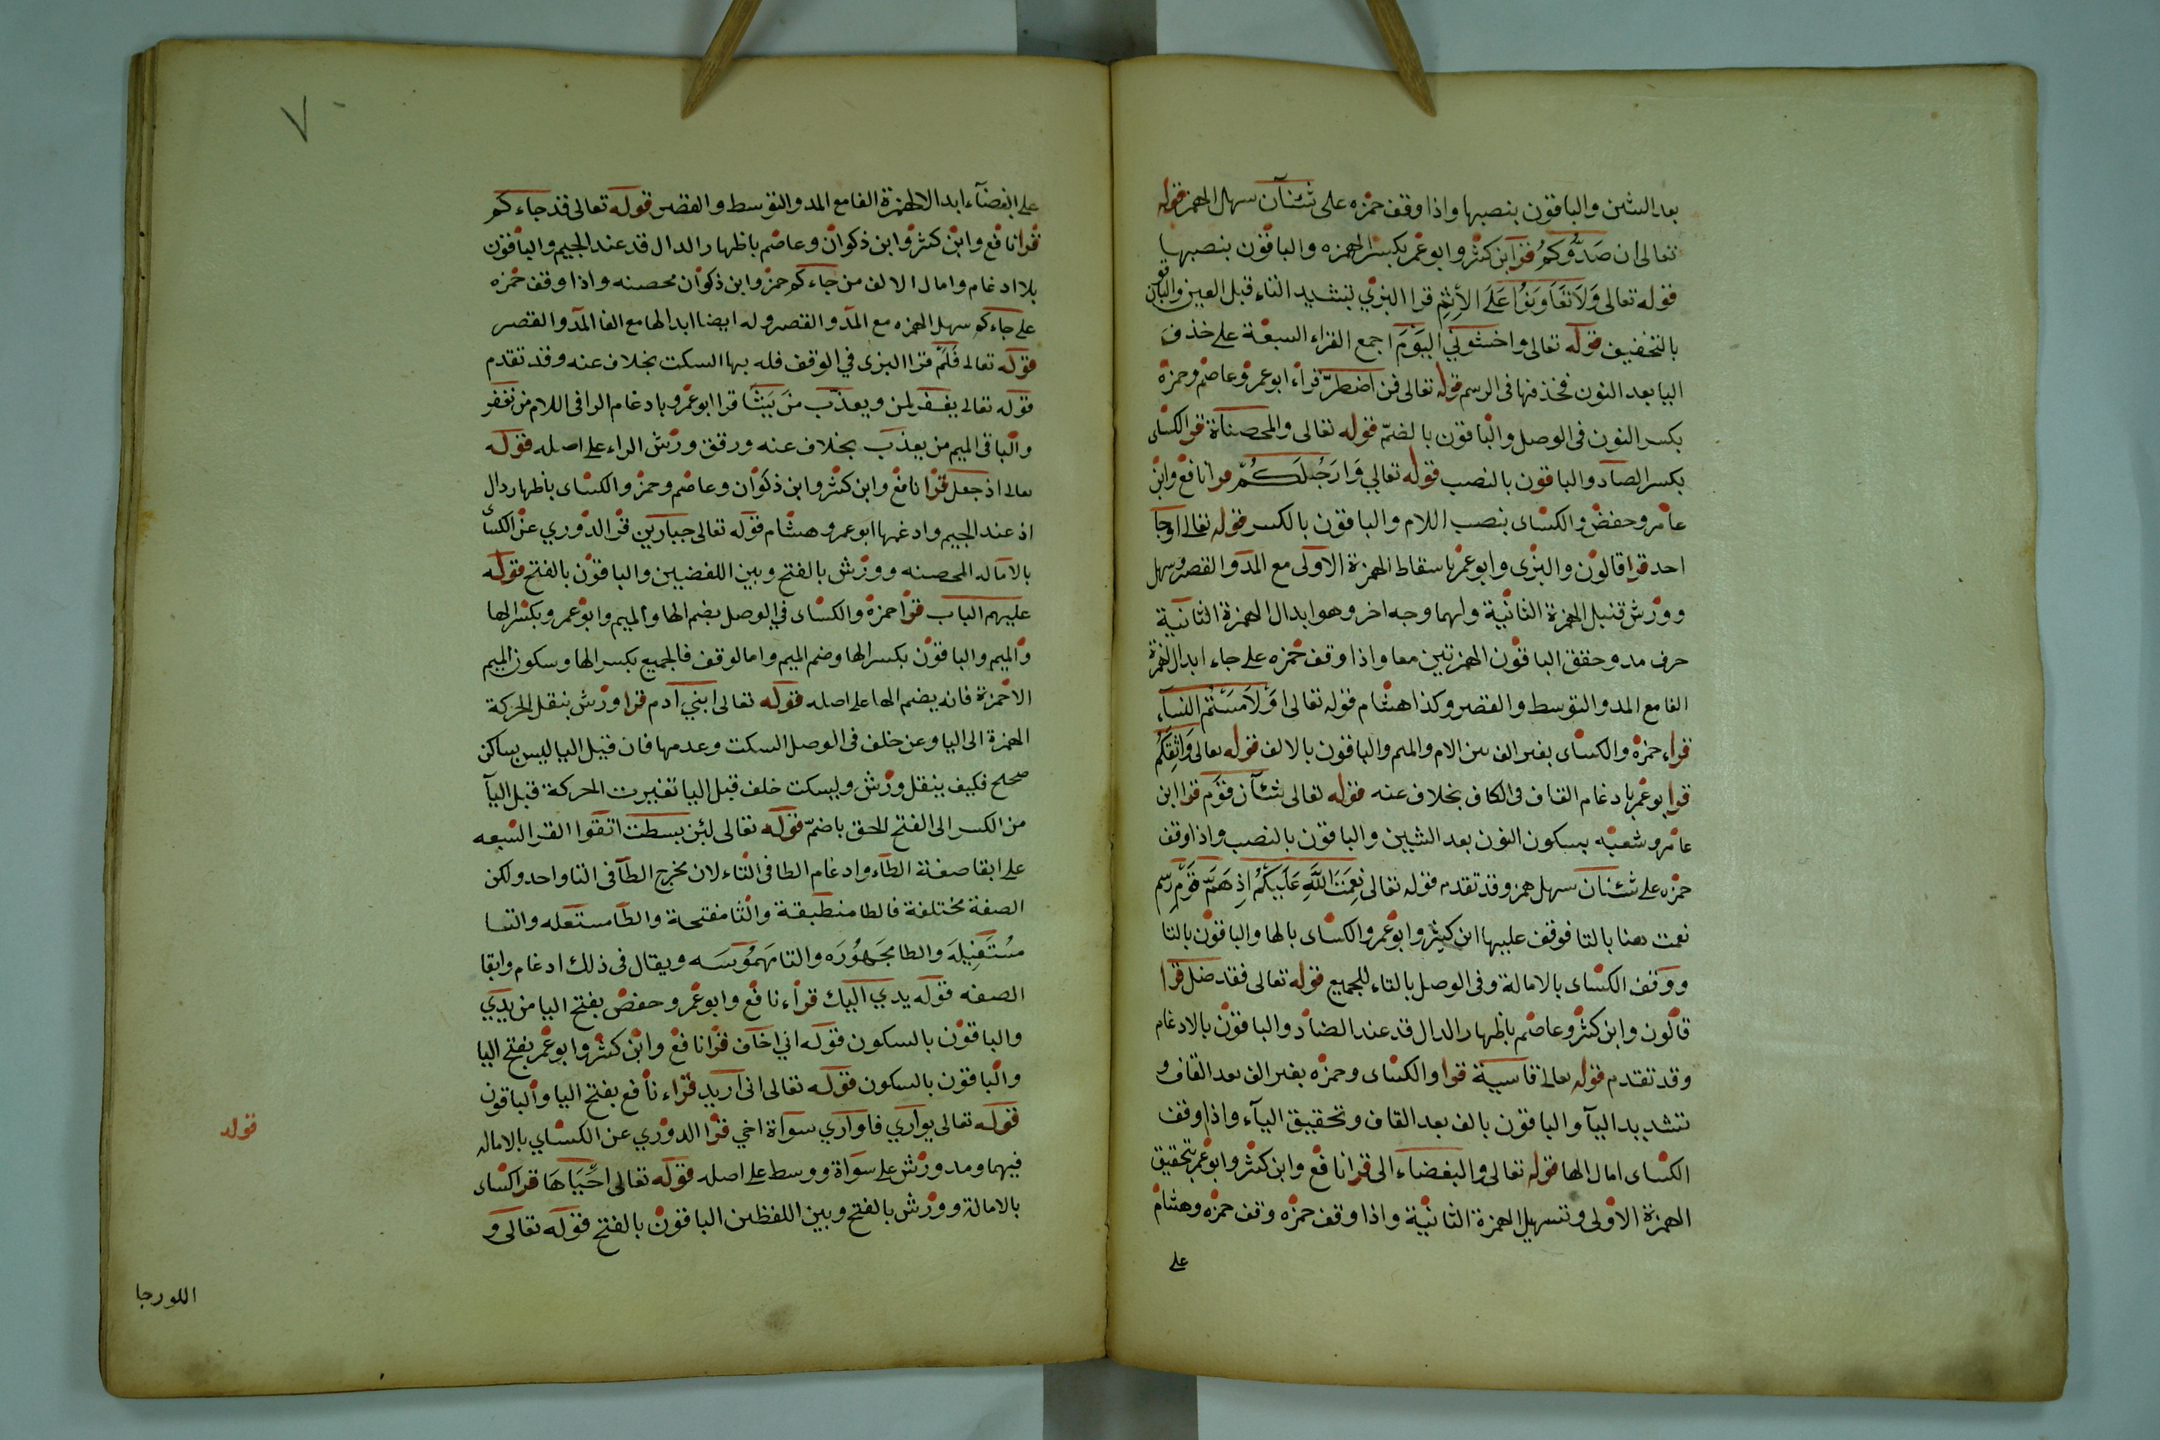 بعد الشين والباقون بنصبها واذا وقف حمزه على شنئآن سهل الهمز قوله
تعالى ان صدوكم قرا ابن كثير وابو عمر بكسر الهمزه والباقون بنصبها
قوله تعالى وَلاَ تَعَاوَنُوا عَلَى الأِثمِ قرا البزي بتشديد التاء قبل العين والباقون
بالتخفيف قوله تعالى واخشوني اليَوْمَ اجمع القراء السبعة على حذف
اليا بعد النون فحذفها في الرسم قوله تعالى فمن اضطر قراء ابو عمرو وعاصم وحمزه
بكسر النون في الوصل والباقون بالضم قوله تعالى والمحصناة قرا الكسائى
بكسر الصاد والباقون بالنصب قوله تعالي وَارَجُلَكُمّ قرا نافع وابن
عامر وحفض والكسائى بنصب اللام والباقون بالكسر قوله تعالى اوجا
احد قرا قالون والبزى وابو عمر باسقاط الهمزة الاولى مع المد والقصر وسهل
وورش قنبل الهمزة الثانية ولهما وجه اخر وهو ابدال الهمزة الثانية
حرف مد وحقق الباقون الهمزتين معا واذا وقف حمزه على جاء ابدال الهمزة
الفا مع المد والتوسط والقصر وكذا هشام قوله تعالى اوْلاَمَسْتُمْ النسآء
قراء حمزه والكسائى بغير الف بين الام والميم والباقون بالالف قوله تعالى وَاثقَكُمْ
قرا بو عمر بادغام القاف في الكاف بخلاف عنه قوله تعالى شنآن قَوْم قرا ابن
عامر وشعبه بسكون النون بعد الشين والباقون بالنصب واذا وقف
حمزه على شنئان سهل همز وقد تقدم قوله تعالى نِعمَتَ اللَّهِ عَلَيكُمْ اِذ هَمّ قَوْم رسم
نعمت هنا بالتا فوقف عليها ابن كثير وابو عمر والكسائى بالها والباقون بالتا
ووقف الكسائى بالامالة وفى الوصل بالتاء للجميع قوله تعالى فقد ضل قرا
قالون وابن كثر وعاصم باظهار الدال قد عند الضاد والباقون بالادغام
وقد تقدم قوله تعالى قاسية قرا والكسائى وحمزه بغير الف بعد القاف و
تشديد اليآ والباقون بالف بعد القاف وتحقيق اليآء واذا وقف
الكسائى امال الها قوله تعالى والبغضاء الى قرا نافع وابن كثر وابو عمر بتحقيق
الهمزة الاولى وتسهيل الهمزة الثانية واذا وقف حمزه وقف حمزه وهشام
على
على البغضآء ابدا الا لهمزة الفا مع المد والتوسط والقصر قوله تعالى قد جاءكم
قرا نافع وابن كثر وابن ذكوان وعاصم باظهار الدال قد عند الجيم والباقون
بلا ادغام وامال الالف من جاءكم حمز وابن ذكوان محصنه واذا وقف حمزه
على جاءكم سهل الهمزه مع المد والقصر وله ايضا ابدالها مع الفا المد والقصر
قوله تعالى فَلِمَ قرا البزى في الوقف فله بها السكت بخلاف عنه وقد تقدم
قوله تعالى يغفر لمن ويعذب منَ يَشَآ قرا ابو عمرو بادغام الرا في اللام من نغفر
والبا في الميم من يعذب بخلاف عنه ورقق ورش الراء على اصله قوله
تعالى اذ جعل قرا نافع وابن كثر وابن ذكوان وعاصم وحمز والكسائى باظهار دال
اذ عند الجيم وادغمها ابو عمرو وهشام قوله تعالى جبارين قرا الدوري عن الكسائ
بالاماله المحصنه وورش بالفتح وبين اللفضين والباقون بالفتح قوله
عليهم الباب قرا حمزه والكسائى في الوصل بضم الها والميم وابو عمرو بكسر الها
والميم والباقون بكسر الها وضم الميم واما لوقف فالجميع بكسر الها وسكون الميم
الا حمزة فانه يضم الها على اصله قوله تعالى ابني آدم قرا ورش بنقل الحركة
الهمزة الى اليا وعن خلف فى الوصل السكت وعدمها فان قيل اليا ليس بساكن
صحلح فكيف ينقل ورش وليسكت خلف قيل اليا تغييرت الحركة قبل اليآ
من الكسر الى الفتح للحق باضمّ قوله تعالى لئن بسطت اتقوا القر السبعه
على ابقا صفة الطآء وادغام الطا فى التاء لان مخرج الطآ فى التا واحد ولكن
الصفة مختلفة فالطا منطبقة والتا مفتحة والطا مستعله والتا
مُسْتَفِيلَه والطا مجَهُورَه والتا مَهمُوسَه ويقال فى ذلك ادغام وابقا
الصفه قوله يدي اليك قراء نافع وابو عمر وحفض بفتح اليا من يدي
والباقون بالسكون قوله اني اخاف قرا نافع وابن كثر وابو عمر بفتح اليا
والباقون بالسكون قوله تعالى انى اريد قراء نافع بفتح اليا والباقون
قوله تعالى يواري فاواري سواة اخي قرا الدوري عن الكسائي بالاماله
فيهما ومد ورش على سواة ووسط على اصله قوله تعالى احْيَاهَا قرا كسائى
بالامالة وورش بالفتح وبين اللفظين الباقون بالفتح قوله تعالى و
قوله